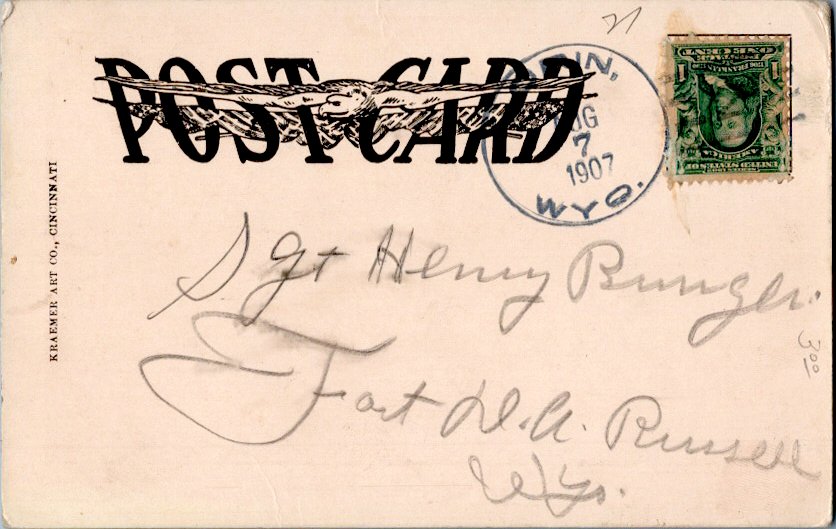 21
POST CARD
IN,
AUG
7
1907
WYO.
ONE CENT
1 1
UNITED STATES OF
AMERICA
KRAEMER ART CO., CINCINNATI
Sgt Henry Bunger.
Fort D.A. Russell
Wyo.
3⁰⁰